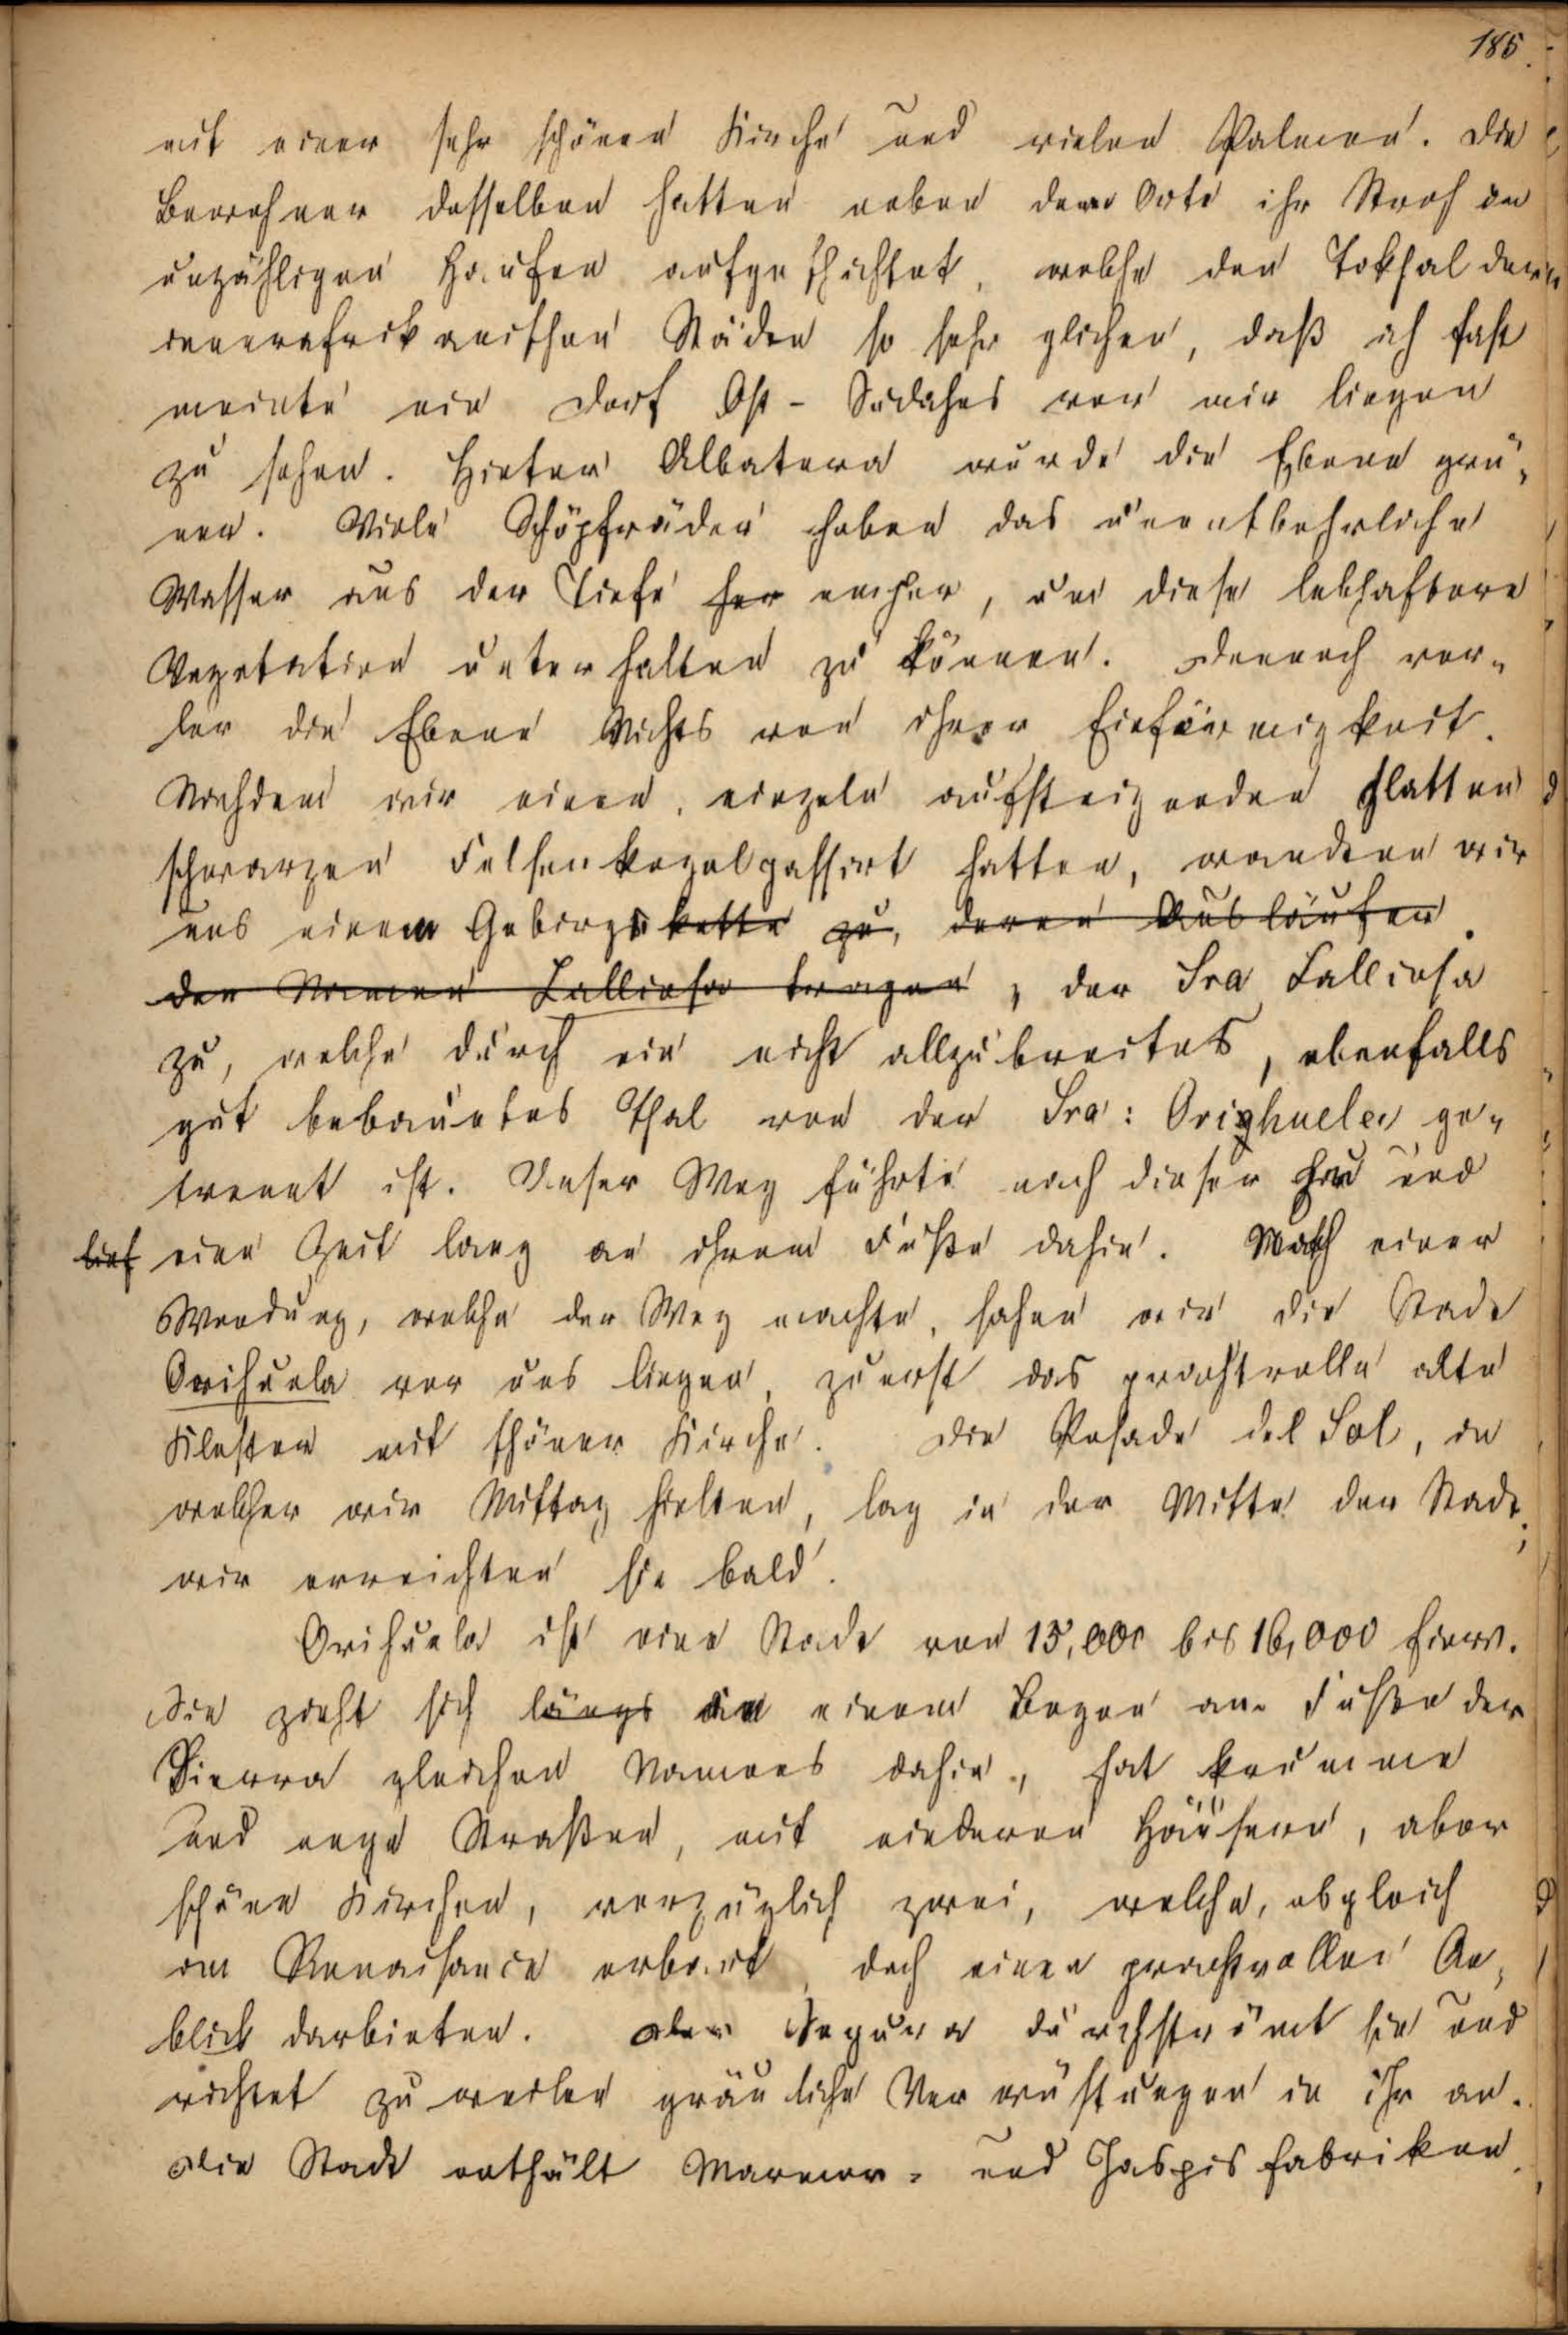 185.
mit einer sehr schönen Kirche und vielen Palmen. Die
Bewohner desselben hatten neben dem Orte ihr Stroh in
unzähligen Haufen aufgeschichtet, welche den Tokhal der
innerafrikanischen Städten so sehr glichen, daß ich fast
meinte ein Dorf Ost-Sudahns vor mir liegen
zu sehen. Hinter Albatera wurde die Ebene grü-
ner. Viele Schöpfräder hoben das unentbehrliche
Wasser aus der Tiefe her empor, um diese lebhaftere
Vegetation unterhalten zu können. Dennoch ver-
lor die Ebene Nichts von ihrer Einförmigkeit.
Nachdem wir einen, einzeln aufsteigenden glatten
schwarzen Felsenkegel passirt hatten, wandten wir
uns einem Gebirgskette zu, deren Ausläufer
den Namen Callosa tragen, der Sra Callosa
zu, welche durch ein nicht allzubreites, ebenfalls
gut bebautes Thal von der Sra: Orighuela ge-
trennt ist. Unser Weg führte nach dieser hin und
lief eine Zeit lang an ihrem Fuße dahin. Nach einer
Wendung, welche der Weg machte, sahen wir die Stadt
Orihuela vor uns liegen, zuerst das prachtvolle alte
Kloster mit schöner Kirche. Die Posade del Sol, in
welcher wir Mittag hielten, lag in der Mitte der Stadt;
wir erreichten sie bald.
Orihuela ist eine Stadt von 15,000 bis 16,000 Einw.
Sie zieht sich längs in einem Bogen am Fuße der
Sierra gleichen Namens dahin, hat krumme
und enge Straßen, mit niederen Häusern, aber
schöne Kirchen, vorzüglich zwei, welche, obgleich
im Renaisance erbaut, doch einen prachtvollen An-
blick darbieten. Der Segura durchströmt sie und
richtet zuweilen gräuliche Verwüstungen in ihr an.
Die Stadt enthält Marmor- und Jaspisfabriken.